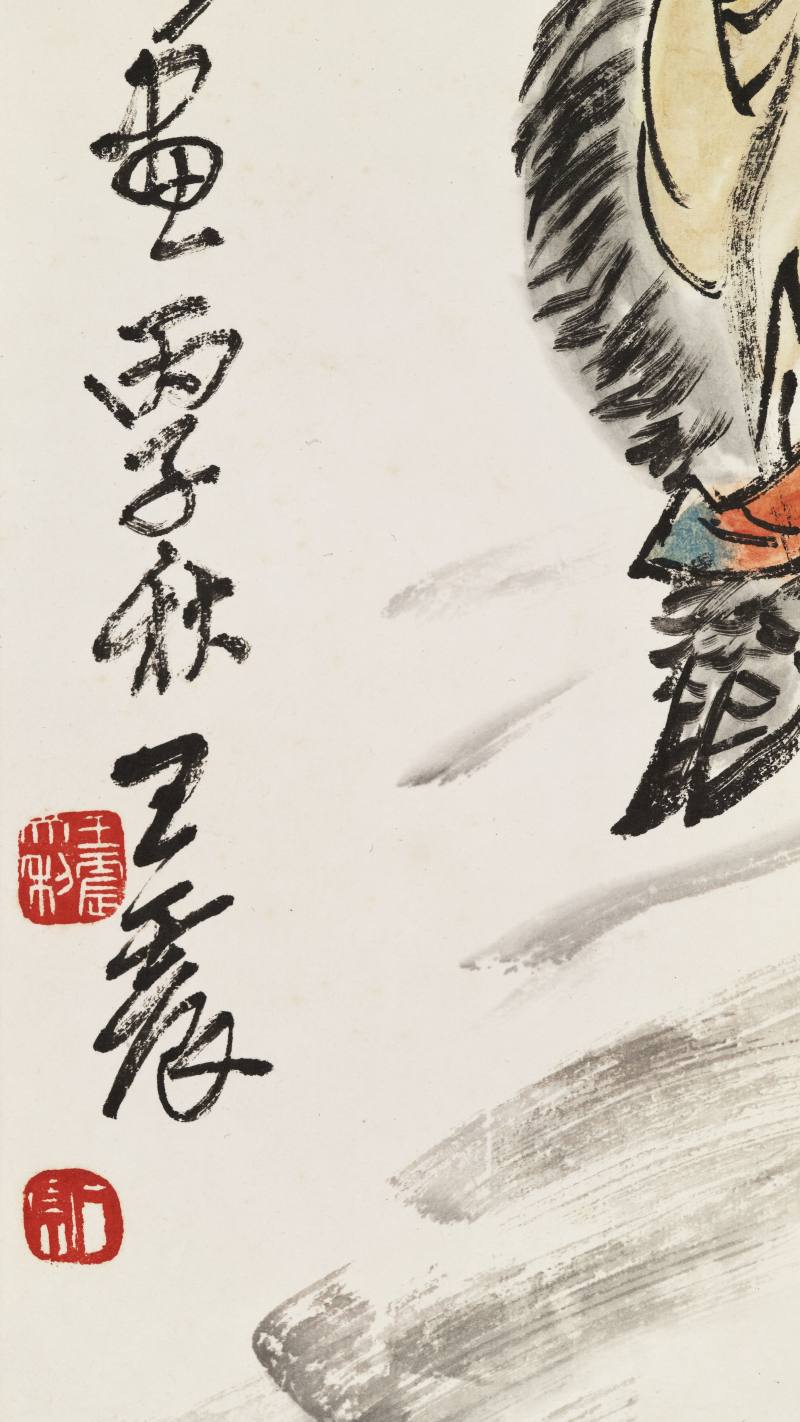 畫
丙子秋
王震
王震